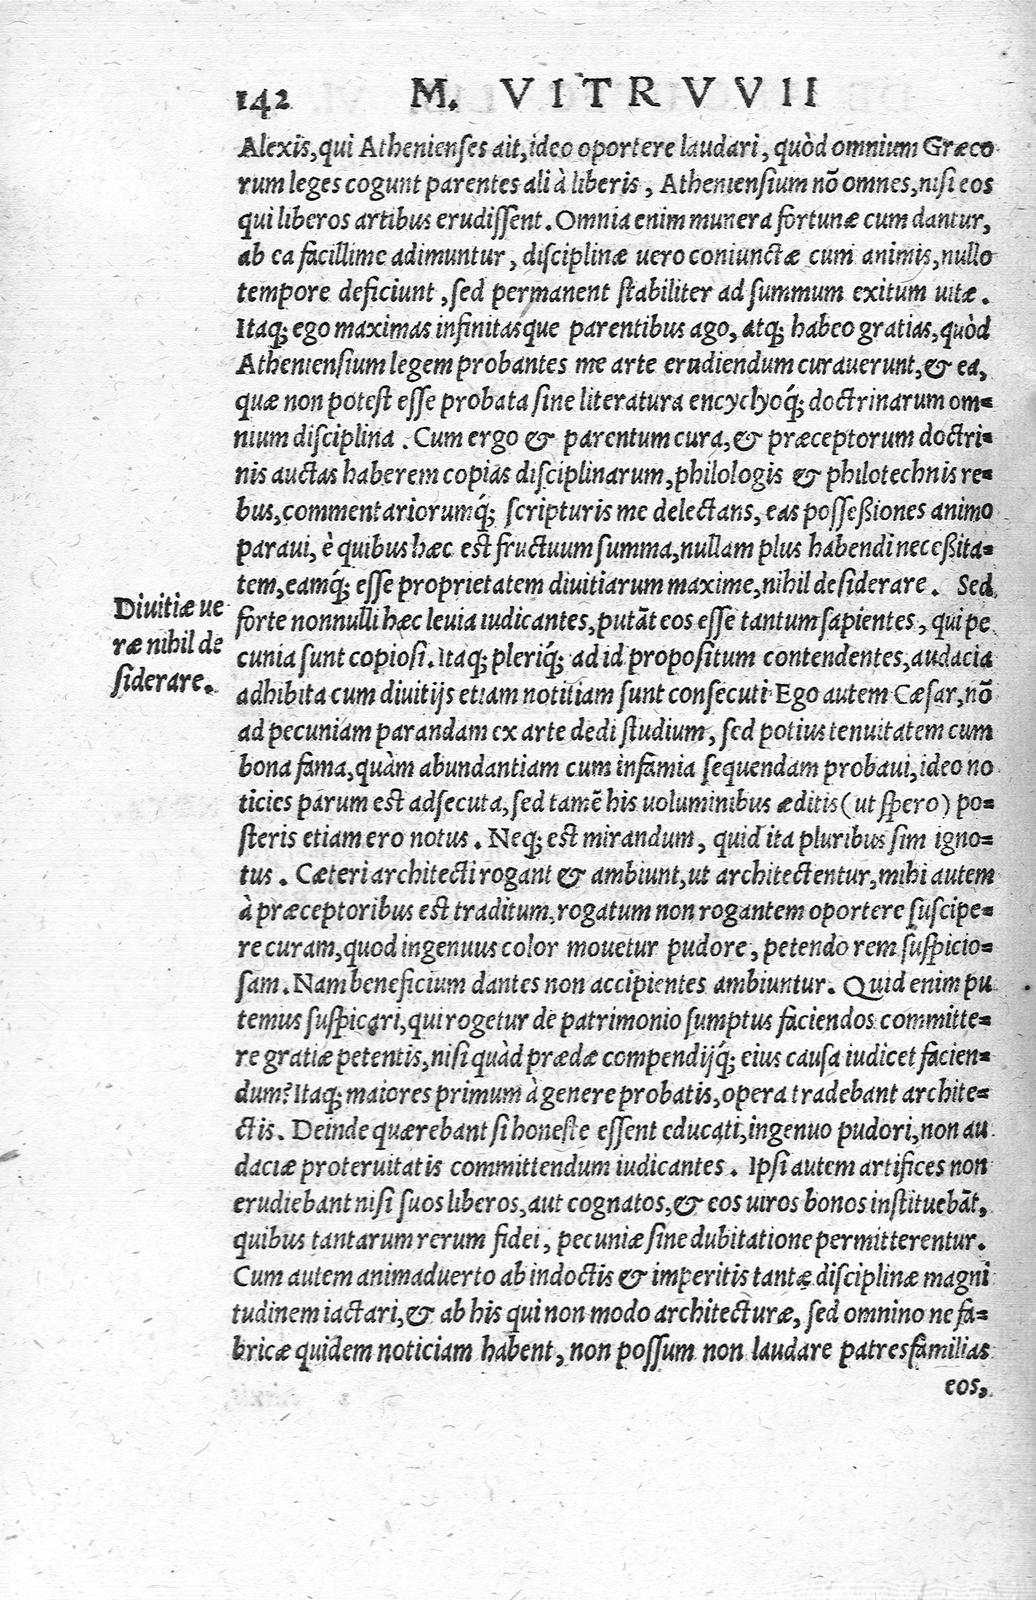 142 M. VITRVVII
Alexis, qui Athenienses ait, ideo oportere laudari, quòd omnium Græco
rum leges cogunt parentes ali à liberis, Atheniensium nõ omnes, nisi eos
qui liberos artibus erudissent. Omnia enim munera fortunæ cum dantur,
ab ea facillime adimuntur, disciplinæ uero coniunctæ cum animis, nullo
tempore deficiunt, sed permanent stabiliter ad summum exitum uitæ.
Itaq; ego maximas infinitasque parentibus ago, atq; habeo gratias, quòd
Atheniensium legem probantes me arte erudiendum curauerunt, & ea,
quæ non potest esse probata sine literatura encyclyoq́; doctrinarum om=
nium disciplina. Cum ergo & parentum cura, & præceptorum doctri=
nis auctas haberem copias disciplinarum, philologis & philotechnis re=
bus, commentariorumq́; scripturis me delectans, eas posseßiones animo
paraui, è quibus hæc est fructuum summa, nullam plus habendi neceßita=
tem, eamq́; esse proprietatem diuitiarum maxime, nihil desiderare. Sed
Diuitiæ ue
ræ nihil de
siderare.
forte nonnulli hæc leuia iudicantes, putãt eos esse tantum sapientes, qui pe
cunia sunt copiosi. Itaq; pleriq́; ad id propositum contendentes, audacia
adhibita cum diuitijs etiam notitiam sunt consecuti. Ego autem Cæsar, nõ
ad pecuniam parandam ex arte dedi studium, sed potius tenuitatem cum
bona fama, quàm abundantiam cum infamia sequendam probaui, ideo no
ticies parum est adsecuta, sed tamẽ his uoluminibus æditis (ut spero) po=
steris etiam ero notus. Neq; est mirandum, quid ita pluribus sim igno=
tus. Cæteri architecti rogant & ambiunt, ut architectentur, mihi autem
à præceptoribus est traditum, rogatum non rogantem oportere suscipe=
re curam, quod ingenuus color mouetur pudore, petendo rem suspicio=
sam. Nam beneficium dantes non accipientes ambiuntur. Quid enim pu
temus suspicari, qui rogetur de patrimonio sumptus faciendos committe=
re gratiæ petentis, nisi quàd prædæ compendijq́; eius causa iudicet facien=
dum? Itaq; maiores primum à genere probatis, opera tradebant archite=
ctis. Deinde quærebant si honeste essent educati, ingenuo pudori, non au
daciæ proteruitatis committendum iudicantes. Ipsi autem artifices non
erudiebant nisi suos liberos, aut cognatos, & eos uiros bonos instituebãt,
quibus tantarum rerum fidei, pecuniæ sine dubitatione permitterentur.
Cum autem animaduerto ab indoctis & imperitis tantæ disciplinæ magni
tudinem iactari, & ab his qui non modo architecturæ, sed omnino ne fa=
bricæ quidem noticiam habent, non possum non laudare patresfamilias
eos,